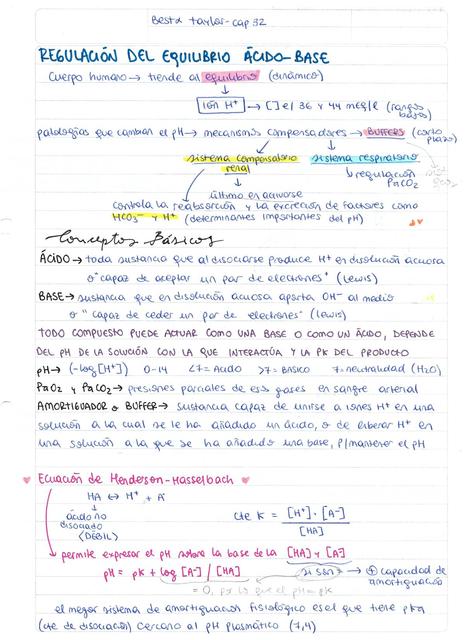 Best & Taylor - cap 32
REGULACIÓN DEL EQUILIBRIO ÁCIDO-BASE
Cuerpo humano → tiende al equilibrio (dinámico)
↓
ión H⁺ → [ ] e/ 36 y 44 meq/L (rangos bajos)
patologías que cambian el pH → mecanismos compensadores → BUFFERS (corto plazo)
sistema compensatorio renal
sistema respiratorio
↳ regulación PaCO2
último en activarse
controla la reabsorción y la excreción de factores como
HCO3⁻ y H⁺ (determinantes importantes del pH)
Conceptos Básicos
ÁCIDO → toda sustancia que al disociarse produce H⁺ en disolución acuosa
o "capaz de aceptar un par de electrones" (Lewis)
BASE → sustancia que en disolución acuosa aporta OH⁻ al medio
o "capaz de ceder un par de electrones" (Lewis)
TODO COMPUESTO PUEDE ACTUAR COMO UNA BASE O COMO UN ÁCIDO, DEPENDE
DEL PH DE LA SOLUCIÓN CON LA QUE INTERACTÚA Y LA PK DEL PRODUCTO
pH → (-log[H⁺]) 0-14 <7 = Acido >7 = BASICO 7 = neutralidad (H2O)
PaO2 y PaCO2 → presiones parciales de esos gases en sangre arterial
AMORTIGUADOR o BUFFER → sustancia capaz de unirse a iones H⁺ en una
solución a la cual se le ha añadido un ácido, o de liberar H⁺ en
una solución a la que se ha añadido una base, p/mantener el pH
♥ Ecuación de Henderson-Hasselbach ♥
HA ↔ H⁺ + A⁻
↓
ácido no disociado (DÉBIL)
cte K = [H⁺]·[A-] / [HA]
permite expresar el pH sobre la base de la [HA] y [A-]
pH = pK + log [A-] / [HA]
si son = → ⊕ capacidad de amortiguación
= 0, por lo que el pH = pK
el mejor sistema de amortiguación fisiológico es el que tiene pKa
(cte de disociación) cercano al pH plasmático (7,4)